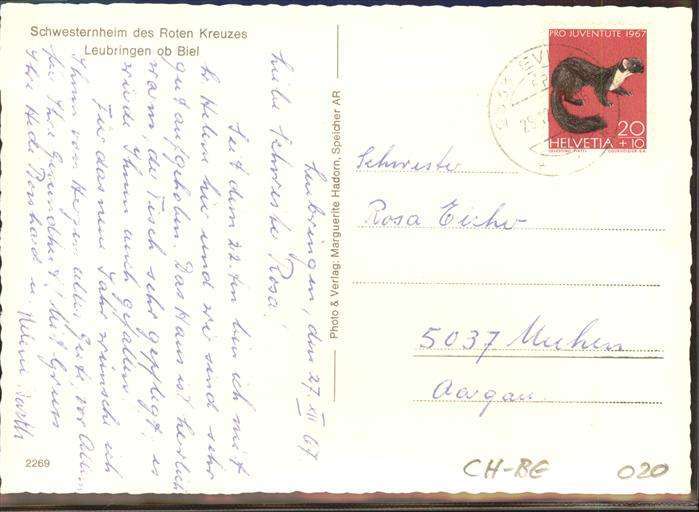 Schwesternheim des Roten Kreuzes
Leubringen ob Biel
Leubringen, den 27. XII 67
Liebe Schwester Rosa!
Seit dem 22. bin ich mit
Sr Helene hier und wir sind sehr
gut aufgehoben. Das Haus ist herrlich
warm der Tisch sehr gepflegt, es
würde Ihnen auch gefallen.
Für das neue Jahr wünsche ich
Ihnen von Herzen alles Gute vor allem
für Ihre Gesundheit! Mit Gruss
Ihre Hedi u. Helene
Photo & Verlag: Marguerite Hadorn, Speicher AR
PRO JUVENTUTE 1967
20
HELVETIA +10
Schwester
Rosa
5037 Muhen
Aargau
2269
CH-BE 020